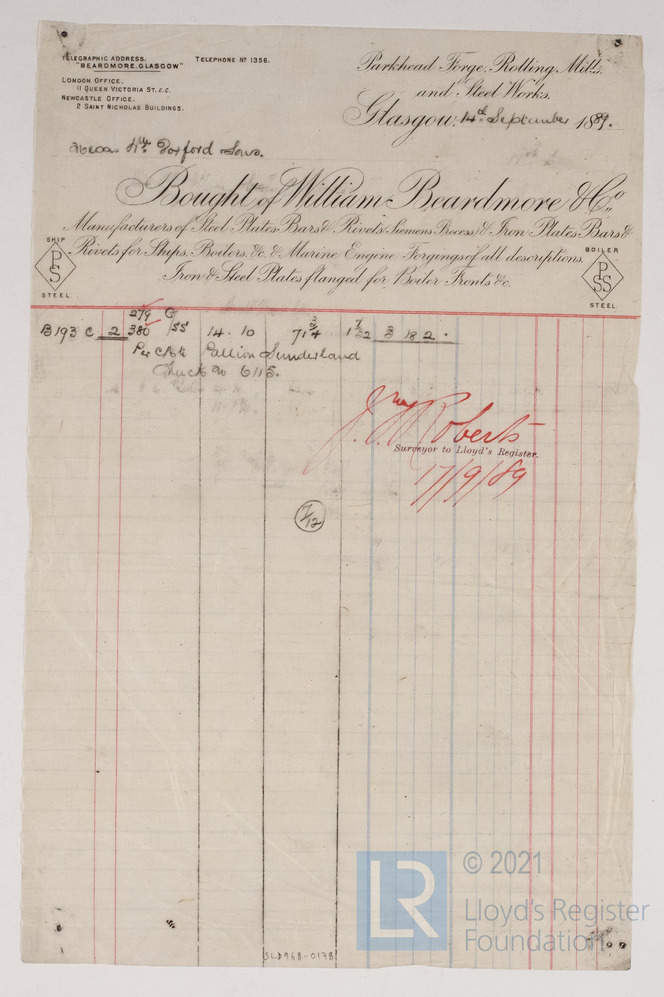 TELEGRAPHIC ADDRESS,
"BEARDMORE, GLASGOW"
TELEPHONE Nº 1356.
LONDON OFFICE,
11 QUEEN VICTORIA ST. E.C.
NEWCASTLE OFFICE.
2 SAINT NICHOLAS BUILDINGS.
Parkhead Forge, Rolling Mills,
and Steel Works.
Glasgow, 14th September 1889.
Doxford Sons.
Bought of William Beardmore & Co.,
Manufacturers of Steel Plates Bars & Rivets (Siemens Process) & Iron Plates Bars &
Rivets for Ships, Boilers, &c. & Marine Engine Forgings of all descriptions.
Iron & Steel Plates flanged for Boiler Fronts &c.
SHIP
PS
STEEL
BOILER
PSS
STEEL
279 G
B193 C 2 380 /SS 14.10 71 3/4 1 7/32 3 18 2.
Per Pallion Sunderland
Truck No 6115.
Roberts
Surveyor to Lloyd's Register.
17/9/89
7/12
SLD968-0178
LR
© 2021
Lloyd's Register
Foundation